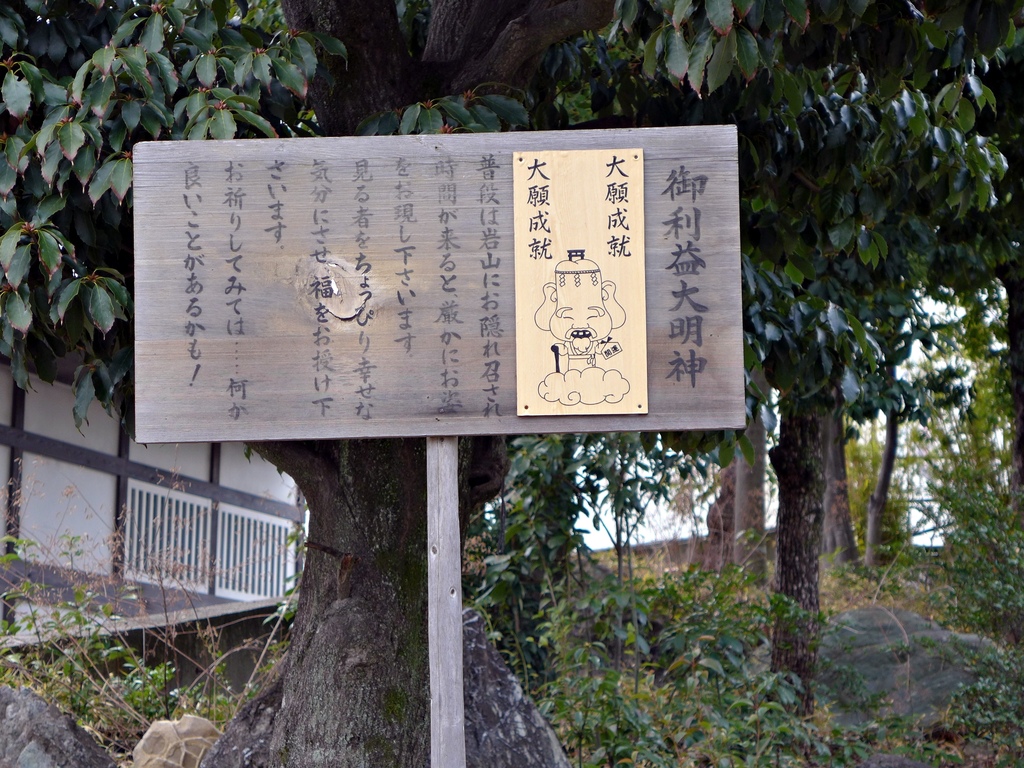 御利益大明神
大願成就
大願成就
開運
普段は岩山にお隠れ召され
時間が来ると厳かにお姿
をお現し下さいます。
見る者をちょっぴり幸せな
気分にさせ福をお授け下
さいます。
お祈りしてみては……何か
良いことがあるかも!